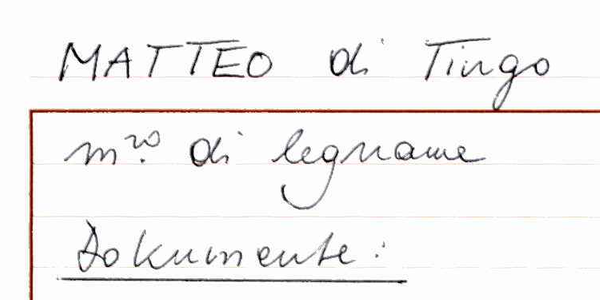 MATTEO di Tingo
m.ro di legname
Dokumente: